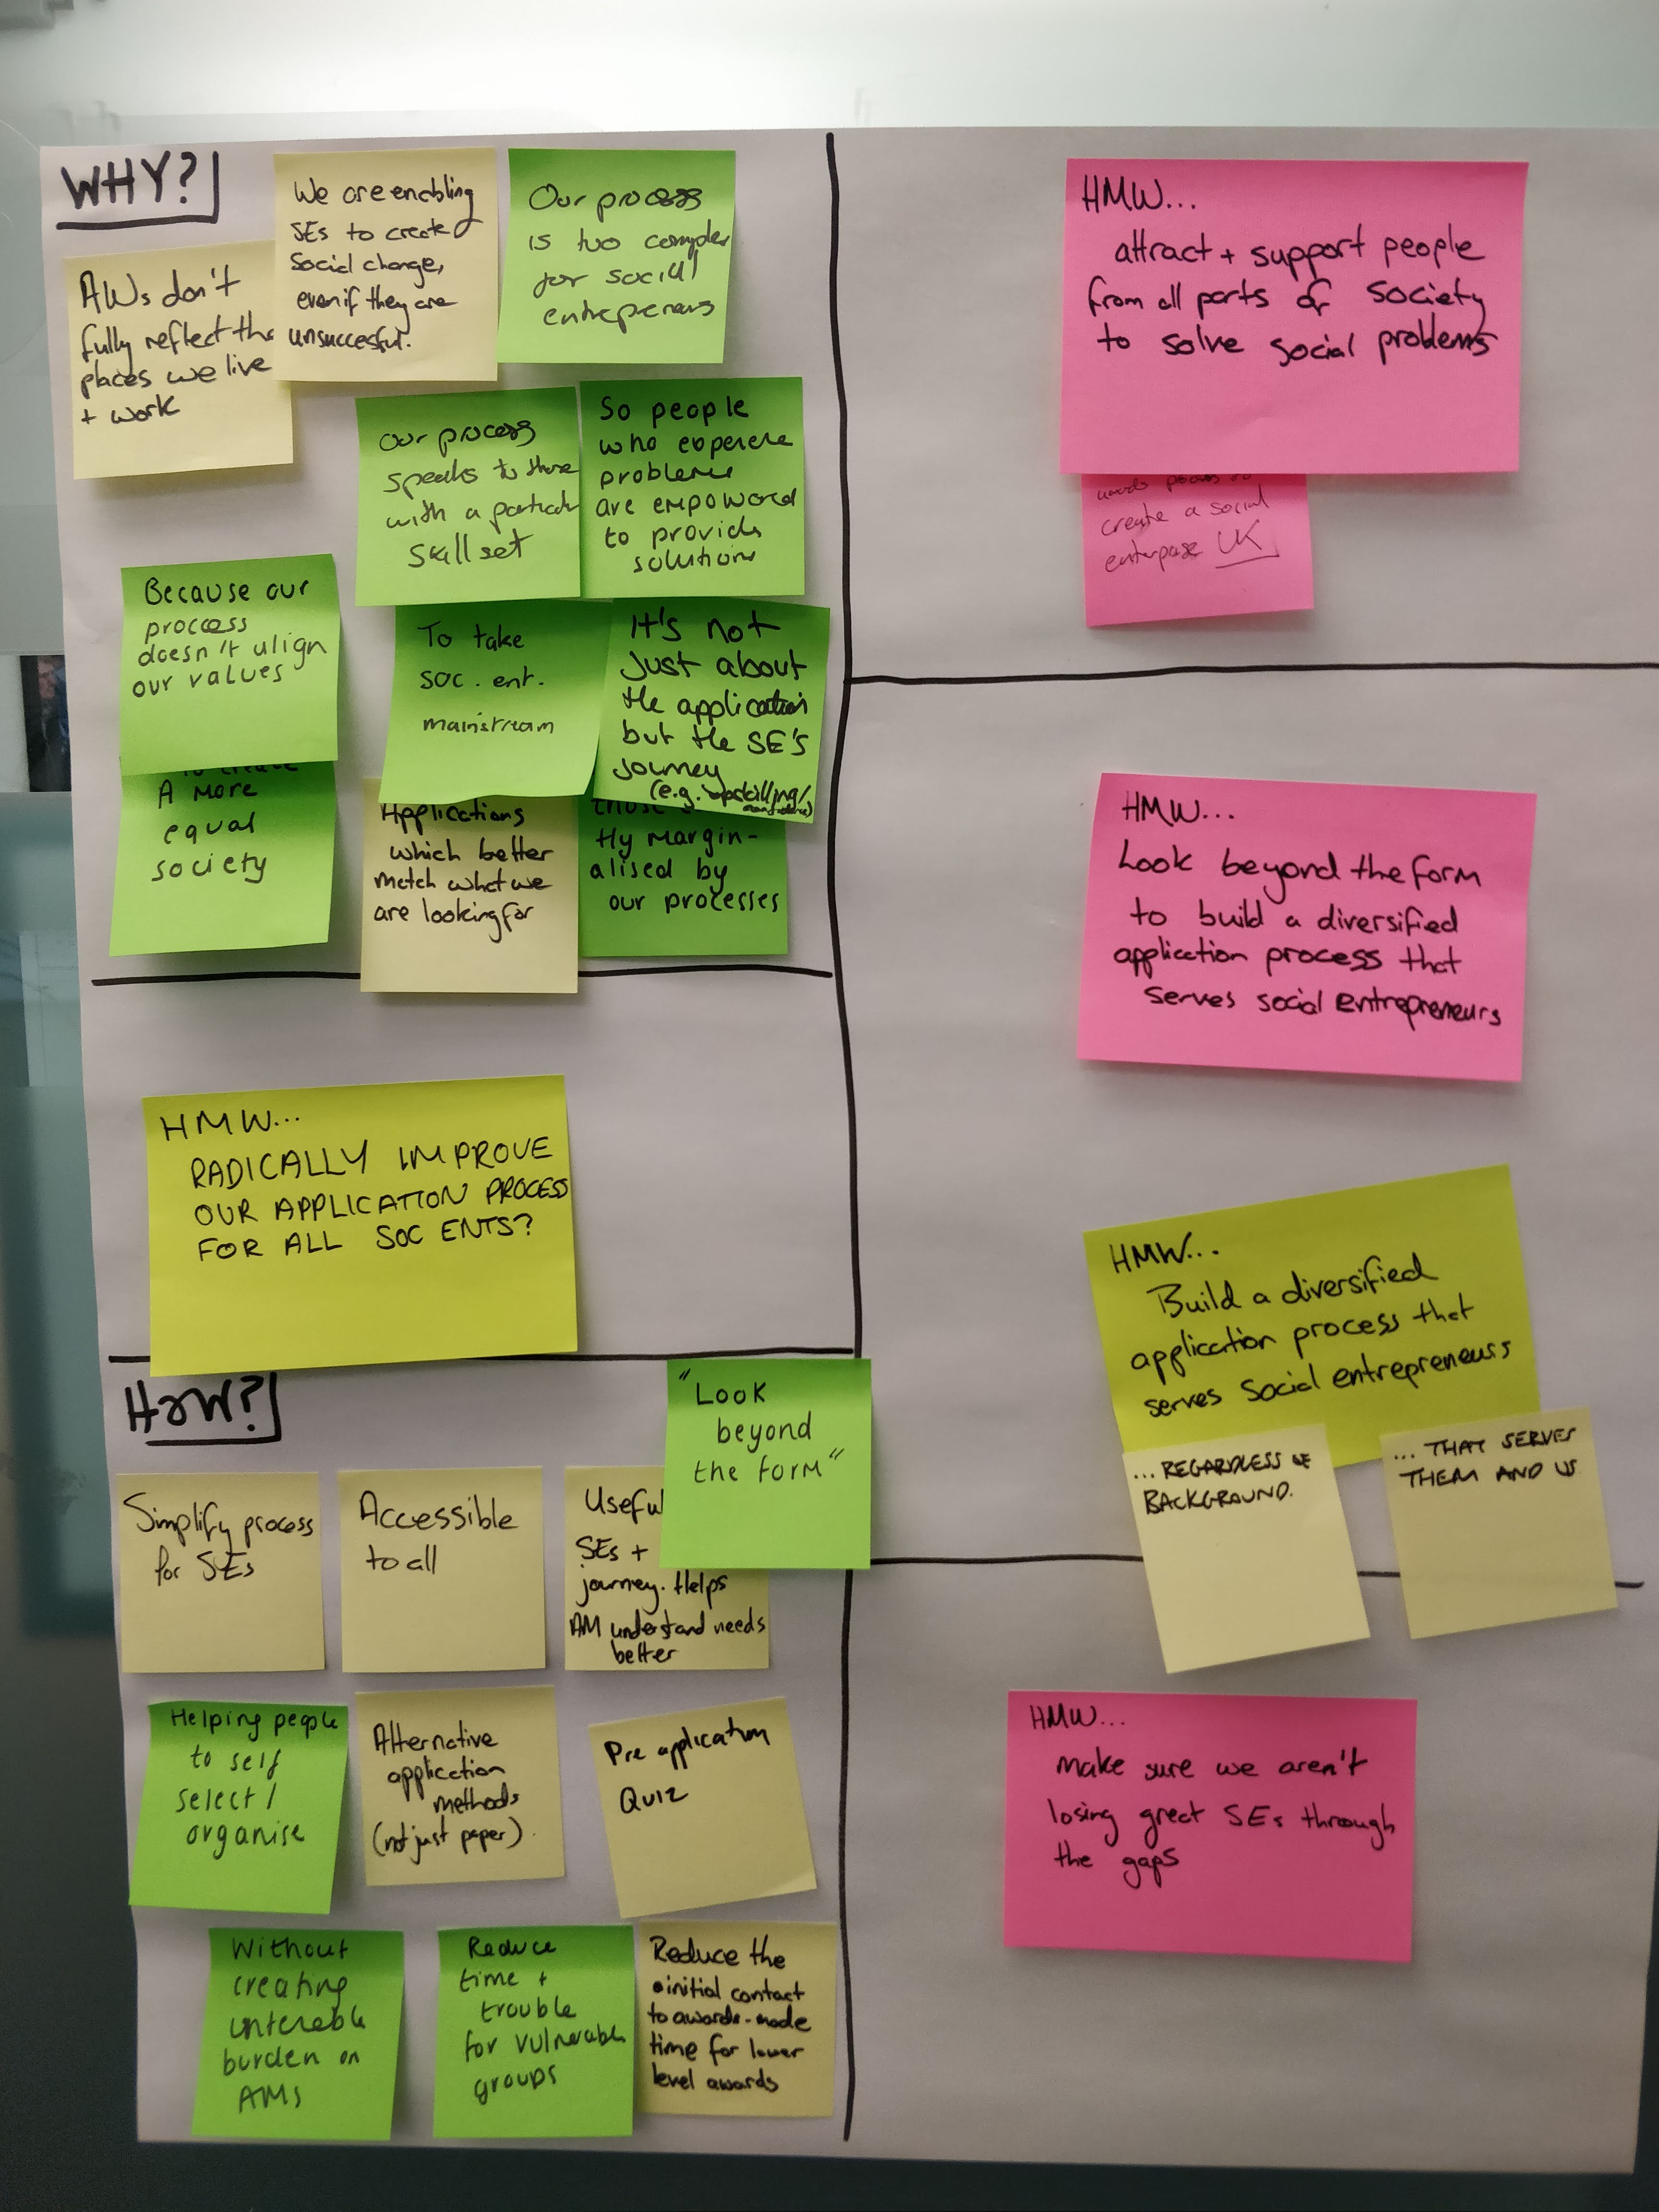 WHY?
AWs don't
fully reflect the
places we live
+ work
We are enabling
SEs to create
Social change,
even if they are
unsuccesful.
Our process
is too complex
for social
entrepreners
Our process
speaks to those
with a particular
skill set
So people
who
problems
are empowered
to provide
solutions
Because our
proccess
doesn't align
our values
A more
equal
society
To take
soc. ent.
mainstream
It's not
just about
the application
but the SE's
journey
(e.g. upskilling/
Applications
which better
match what we
are looking for
tly margin-
alised by
our processes
HMW...
RADICALLY IMPROVE
OUR APPLICATION PROCESS
FOR ALL SOC ENTS?
How?
"Look
beyond
the form"
Simplify process
for SEs
Accessible
to all
Useful
SEs +
journey. Helps
AM understand needs
better
Helping people
to self
select /
organise
Alternative
application
methods
(not just paper).
Pre application
Quiz
Without
creating
untenable
burden on
AMs
Reduce
time +
trouble
for vulnerable
groups
Reduce the
initial contact
to awards-made
time for lower
level awards
HMW...
attract + support people
from all parts of society
to solve social problems
create a social
enterprise UK
HMW...
Look beyond the form
to build a diversified
application process that
serves social entrepreneurs
HMW...
Build a diversified
application process that
serves social entrepreneurs
... REGARDLESS OF
BACKGROUND.
... THAT SERVES
THEM AND US
HMW...
make sure we aren't
losing great SEs through
the gaps